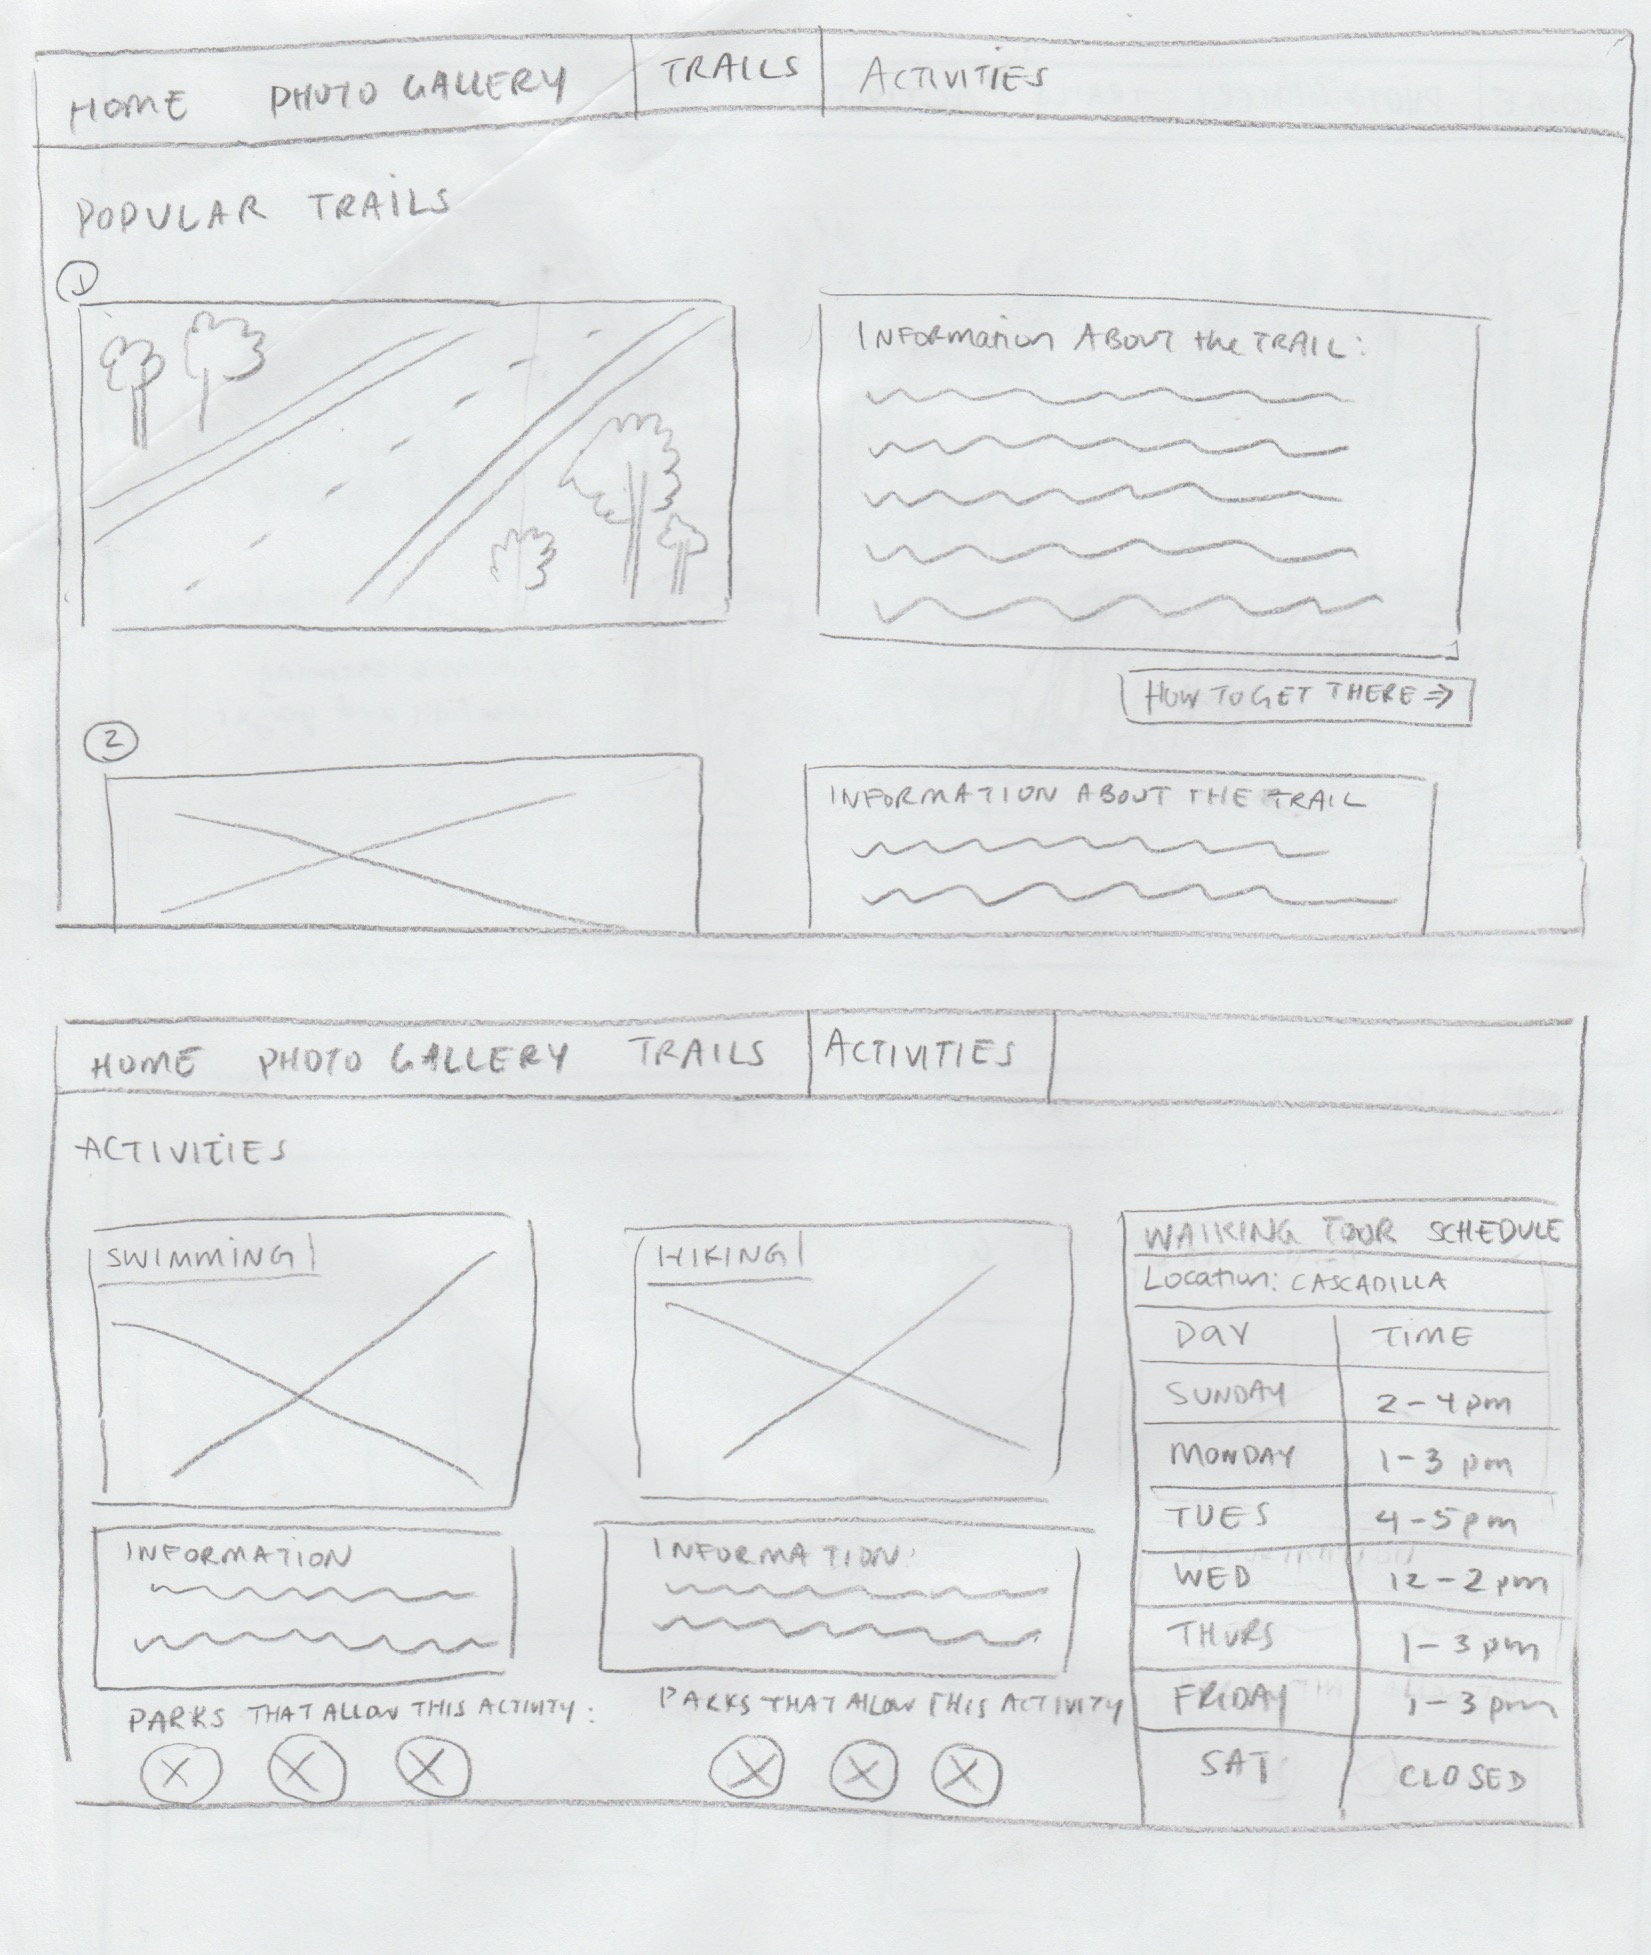 HOME PHOTO GALLERY TRAILS ACTIVITIES
POPULAR TRAILS
1
INFORMATION ABOUT THE TRAIL:
HOW TO GET THERE ⇒
2
INFORMATION ABOUT THE TRAIL
HOME PHOTO GALLERY TRAILS ACTIVITIES
ACTIVITIES
SWIMMING
INFORMATION
PARKS THAT ALLOW THIS ACTIVITY:
HIKING
INFORMATION:
PARKS THAT ALLOW THIS ACTIVITY
WALKING TOUR SCHEDULE
Location: CASCADILLA
DAY TIME
SUNDAY 2-4 pm
MONDAY 1-3 pm
TUES 4-5 pm
WED 12-2 pm
THURS 1-3 pm
FRIDAY 1-3 pm
SAT CLOSED